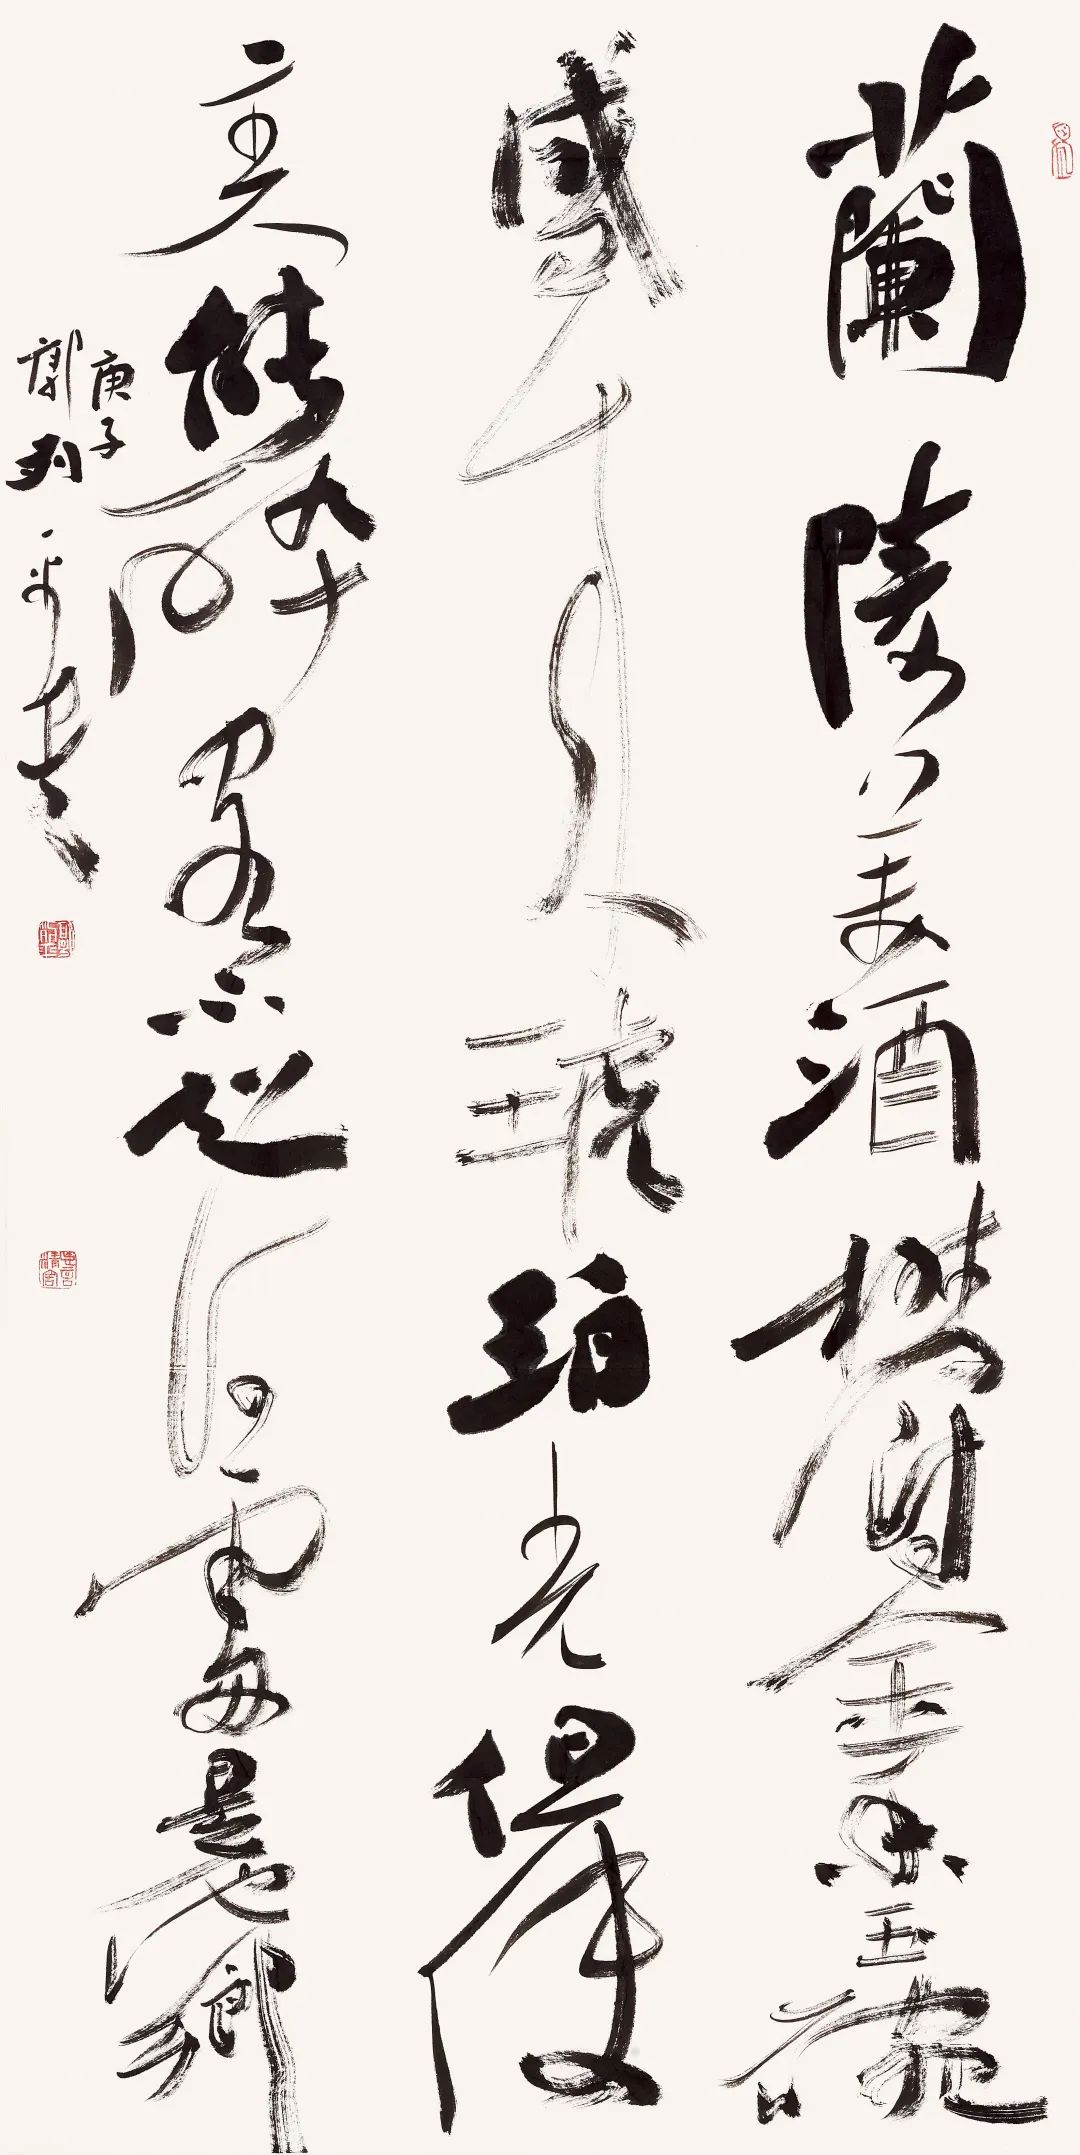 蘭陵美酒鬱金香玉碗
盛來琥珀光但使
主人能醉客不知何處是他鄉
庚子
郭列平書